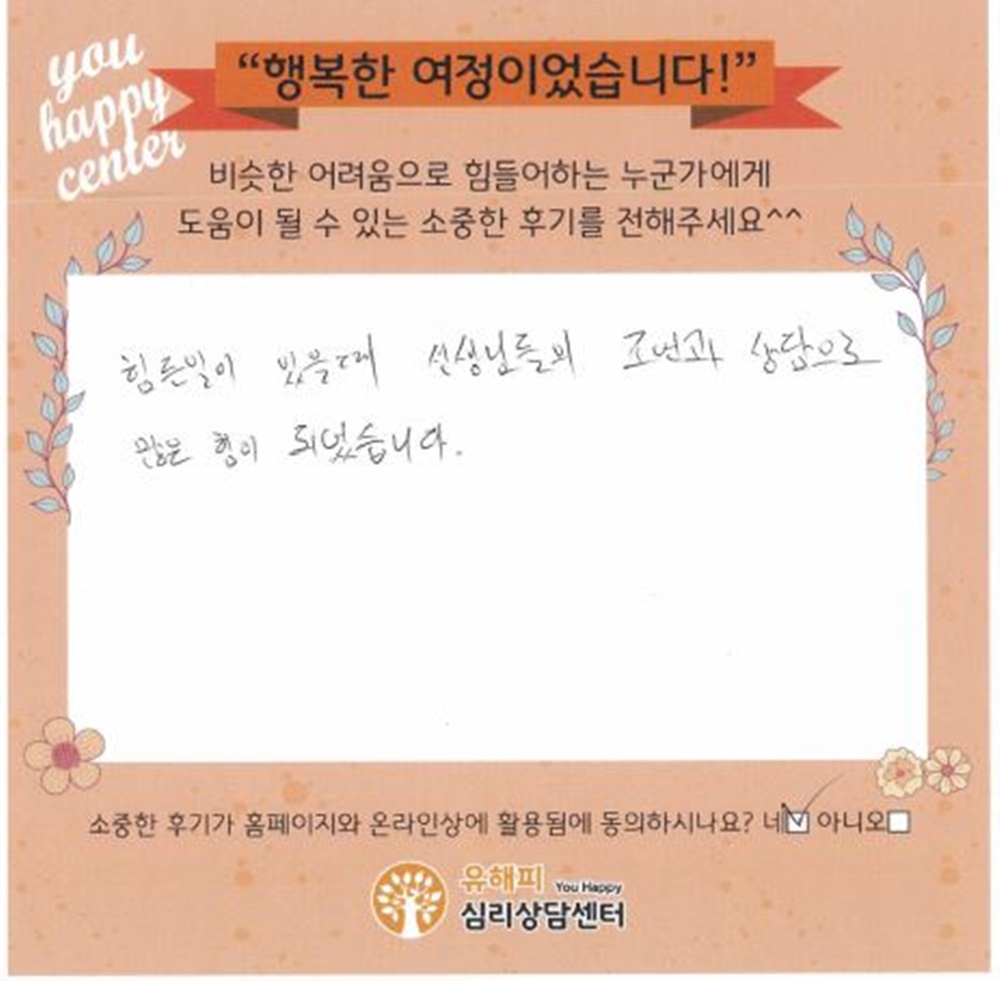 you
happy
center
“행복한 여정이었습니다!”
비슷한 어려움으로 힘들어하는 누군가에게
도움이 될 수 있는 소중한 후기를 전해주세요^^
힘든일이 있을때 선생님들의 조언과 상담으로
많은 힘이 되었습니다.
소중한 후기가 홈페이지와 온라인상에 활용됨에 동의하시나요? 네 아니오
유해피 You Happy
심리상담센터